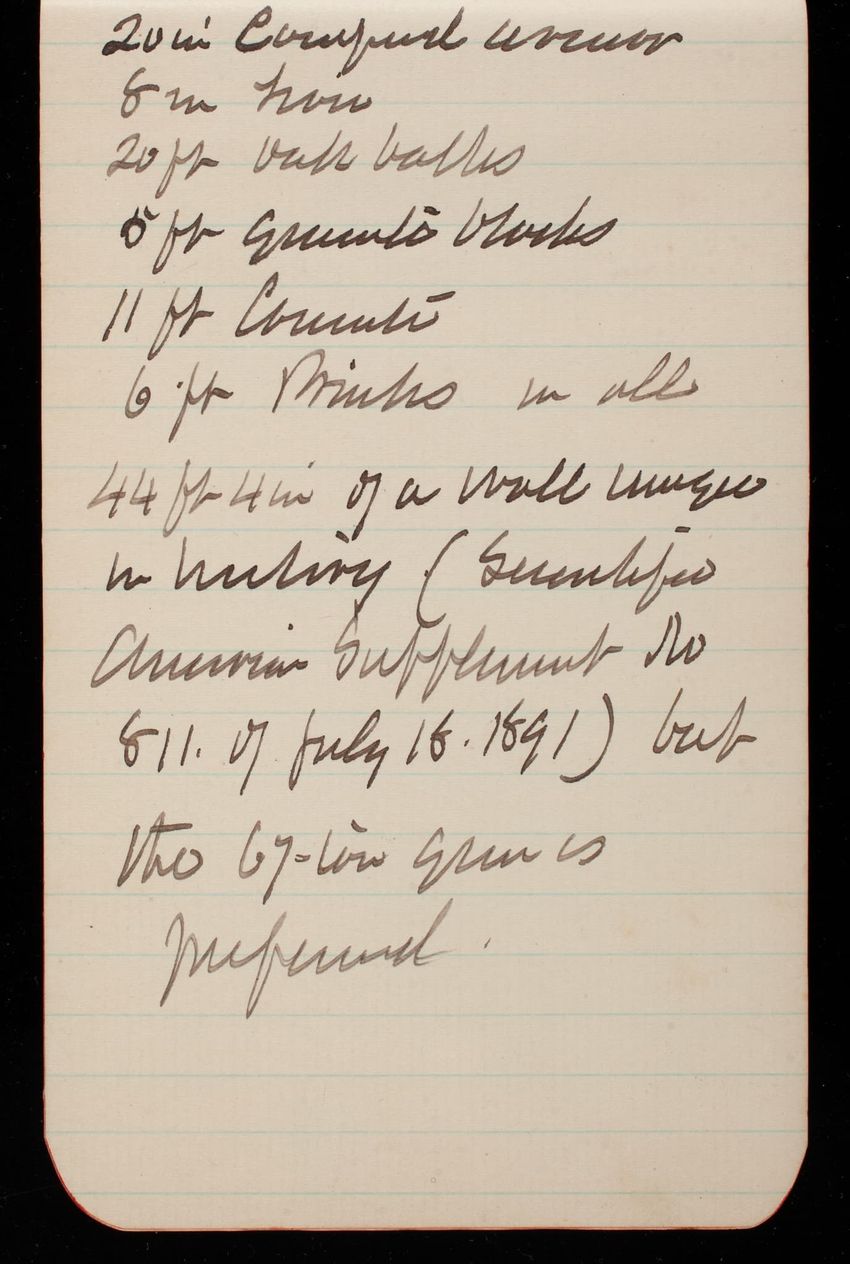 20 in Compound armor
8 in Iron
20 ft oak balks
5 ft granite blocks
11 ft Concrete
6 ft Bricks in all
44 ft 4 in of a wall unique
in history (Scientific
American Supplement No
811. of July 18. 1891) but
the 67-ton gun is
preferred.